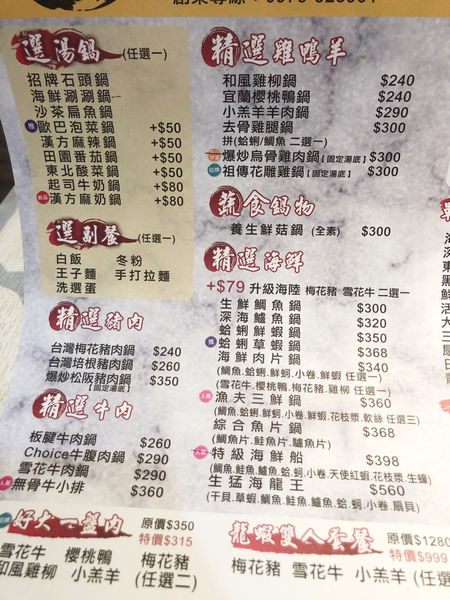 選湯鍋 (任選一)
招牌石頭鍋
海鮮涮涮鍋
沙茶扁魚鍋
推 歐巴泡菜鍋 +$50
漢方麻辣鍋 +$50
田園番茄鍋 +$50
東北酸菜鍋 +$50
起司牛奶鍋 +$80
漢方麻奶鍋 +$80
選副餐 (任選一)
白飯 冬粉
王子麵 手打拉麵
洗選蛋
精選豬肉
台灣梅花豬肉鍋 $240
台灣培根豬肉鍋 $260
爆炒松阪豬肉鍋 $350
【固定湯底】
精選牛肉
板腱牛肉鍋 $260
Choice牛腹肉鍋 $290
雪花牛肉鍋 $290
人氣 無骨牛小排 $360
精選雞鴨羊
和風雞柳鍋 $240
宜蘭櫻桃鴨鍋 $240
小羔羊羊肉鍋 $290
去骨雞腿鍋 $300
拼(蛤蜊/鯛魚 二選一)
爆炒烏骨雞肉鍋【固定湯底】 $300
祖傳花雕雞鍋【固定湯底】 $300
蔬食鍋物
養生鮮菇鍋 (全素) $300
精選海鮮
+$79 升級海陸 梅花豬 雪花牛 二選一
生鮮鯛魚鍋 $300
深海鱸魚鍋 $320
蛤蜊鮮蝦鍋 $350
推 蛤蜊草蝦鍋 $368
海鮮肉片鍋 $340
(鯛魚.蛤蜊.鮮蚵.小卷.鮮蝦 任選一)
(雪花牛.櫻桃鴨.梅花豬.雞柳 任選一)
人氣 漁夫三鮮鍋 $368
(鯛魚.蛤蜊.鮮蚵.小卷.鮮蝦.花枝漿.軟絲 任選三)
綜合魚片鍋 $360
(鯛魚片.鮭魚片.鱸魚片)
人氣 特級海鮮船 $398
(鯛魚.鮭魚.鱸魚.蛤.蚵.小卷.天使紅蝦.花枝漿.生蠔)
生猛海龍王 $560
(干貝.草蝦.鯛魚.鮭魚.鱸魚.蛤.蚵.小卷.扇貝)
好大一盤肉 原價$350
特價$315
雪花牛 櫻桃鴨 梅花豬
和風雞柳 小羔羊 (任選二)
龍蝦雙人套餐 原價$1280
特價$999
梅花豬 雪花牛 小羔羊 (任選